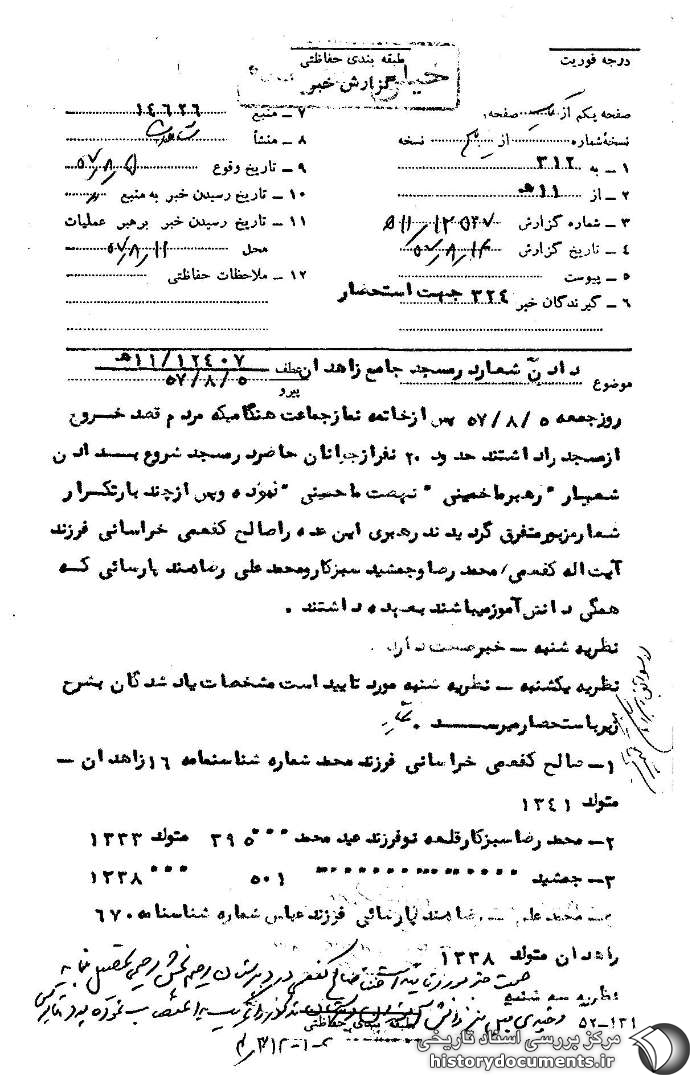 درجه فوریت
طبقه بندی حفاظتی
گزارش خبر
صفحه یکم از صفحه:
نسخه شماره از نسخه
۱ - به ۳۱۲
۲ - از ۱۱ هـ
۳ - شماره گزارش
۴ - تاریخ گزارش
۵ - پیوست
۶ - گیرندگان خبر ۳۲۴ جهت استحضار
۷ - منبع ۱۴۶۲۶
۸ - منشأ
۹ - تاریخ وقوع ۵۷/۸/۵
۱۰ - تاریخ رسیدن خبر به منبع
۱۱ - تاریخ رسیدن خبر برهبر عملیات
محل ۵۷/۸/۱۱
۱۲ - ملاحظات حفاظتی
موضوع دادن شعار در مسجد جامع زاهدان عطف ۱۱/۱۲۴۰۷ هـ
پیرو ۵۷/۸/۵
روز جمعه ۵۷/۸/۵ پس از خاتمه نماز جماعت هنگامیکه مردم قصد خروج
از مسجد را داشتند حدود ۲۰ نفر از جوانان حاضر در مسجد شروع بـــدادن
شعـار "رهبر ما خمینی" نهضت ما حسینی" نموده و پس از چند بار تکـرار
شعار مزبور متفرق گردیدند رهبری این عده را صالح کفعمی خراسانی فرزند
آیت اله کفعمی/ محمد رضا و جمشید سبزکار و محمد علی رضا هند پارسائی کـه
همگی دانش آموز میباشند بعهده داشتند.
نظریه شنبه - خبر صحت دارد.
نظریه یکشنبه - نظریه شنبه مورد تایید است مشخصات یاد شدگان بشرح
زیر باستحضار میرســد.
۱- صالح کفعمی خراسانی فرزند محمد شماره شناسنامه ۱۶ زاهدان -
متولد ۱۳۴۱
۲- محمد رضا سبزکار قلعه نو فرزند عید محمد """ ۳۹۵ متولد ۱۳۳۳
۳- جمشید """""""" ۵۰۱ """ ۱۳۳۸
محمد علی رضا هند پارسائی فرزند عباس شماره شناسنامه ۶۷۰
زاهدان متولد ۱۳۳۸
نظریه سه شنبه
طبقه بندی حفاظتی
۵۲-۱۳۱
مرکز بررسی اسناد تاریخی
historydocuments.ir